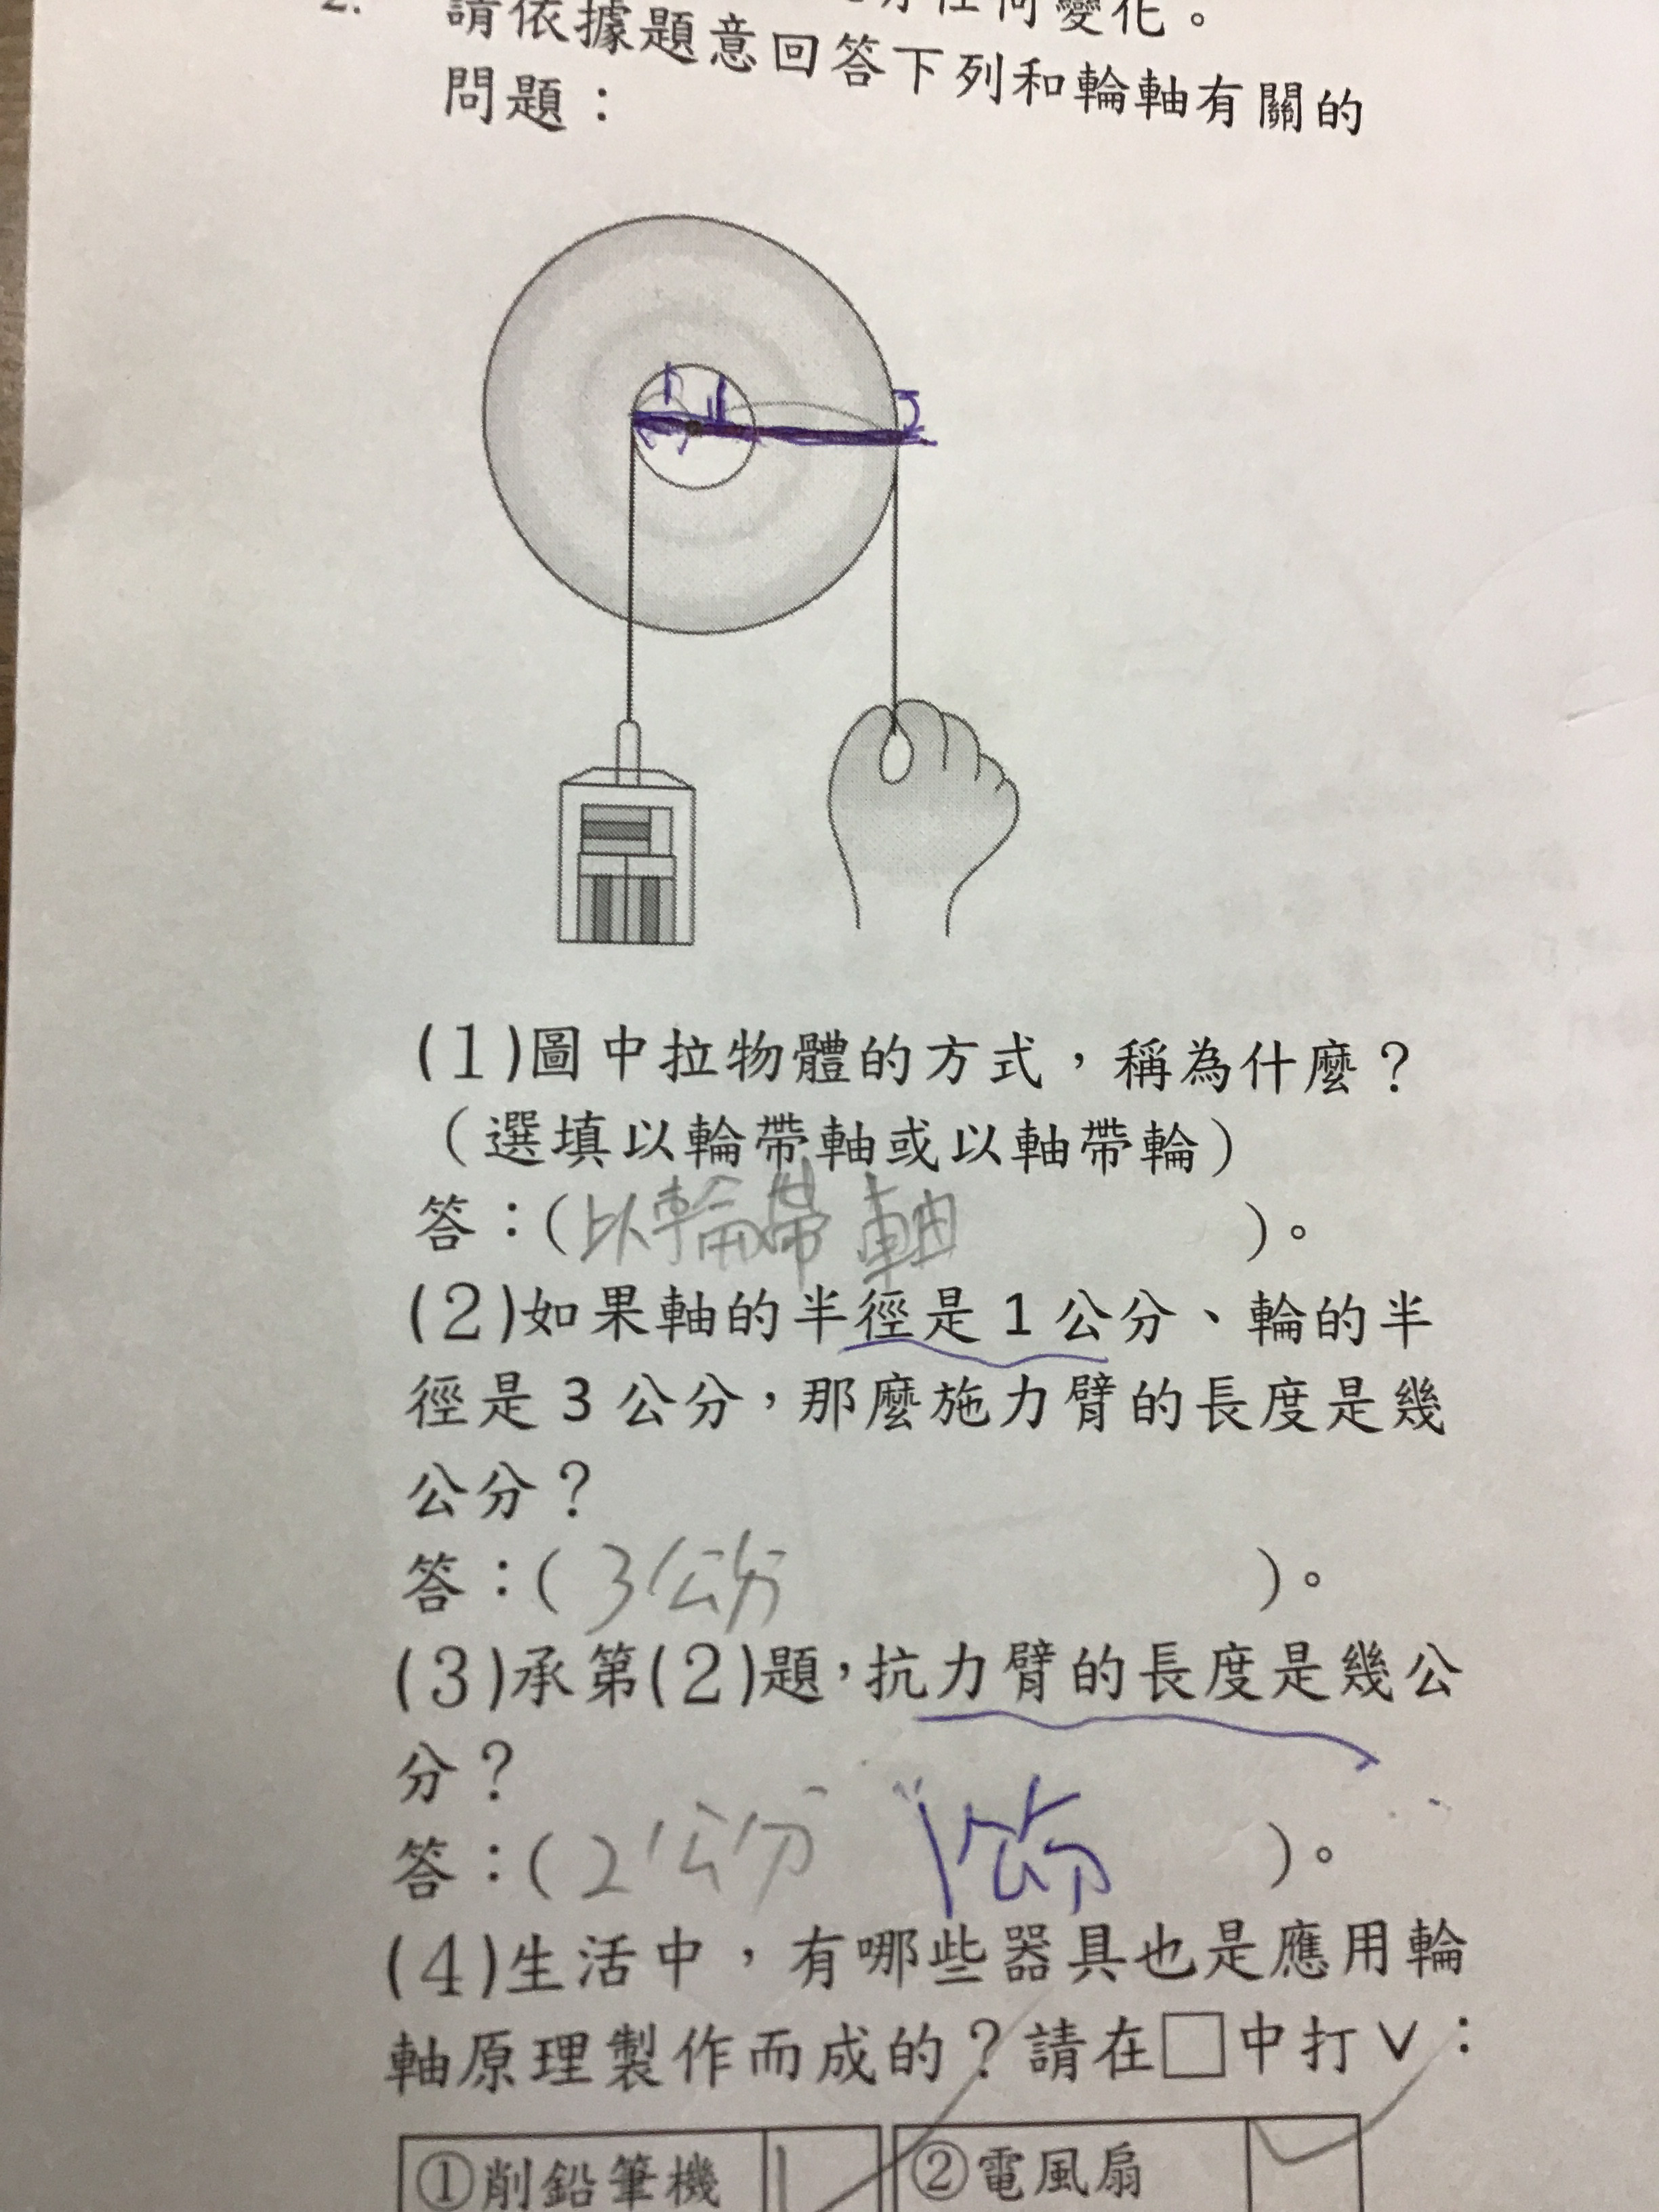 2.
任何變化。
請依據題意回答下列和輪軸有關的
問題：
1
1
2
(1)圖中拉物體的方式，稱為什麼？
（選填以輪帶軸或以軸帶輪）
答：(以輪帶軸)。
(2)如果軸的半徑是1公分、輪的半
徑是3公分，那麼施力臂的長度是幾
公分？
答：(3公分)。
(3)承第(2)題，抗力臂的長度是幾公
分？
答：(2公分 1公分)。
(4)生活中，有哪些器具也是應用輪
軸原理製作而成的？請在□中打∨：
①削鉛筆機 ②電風扇